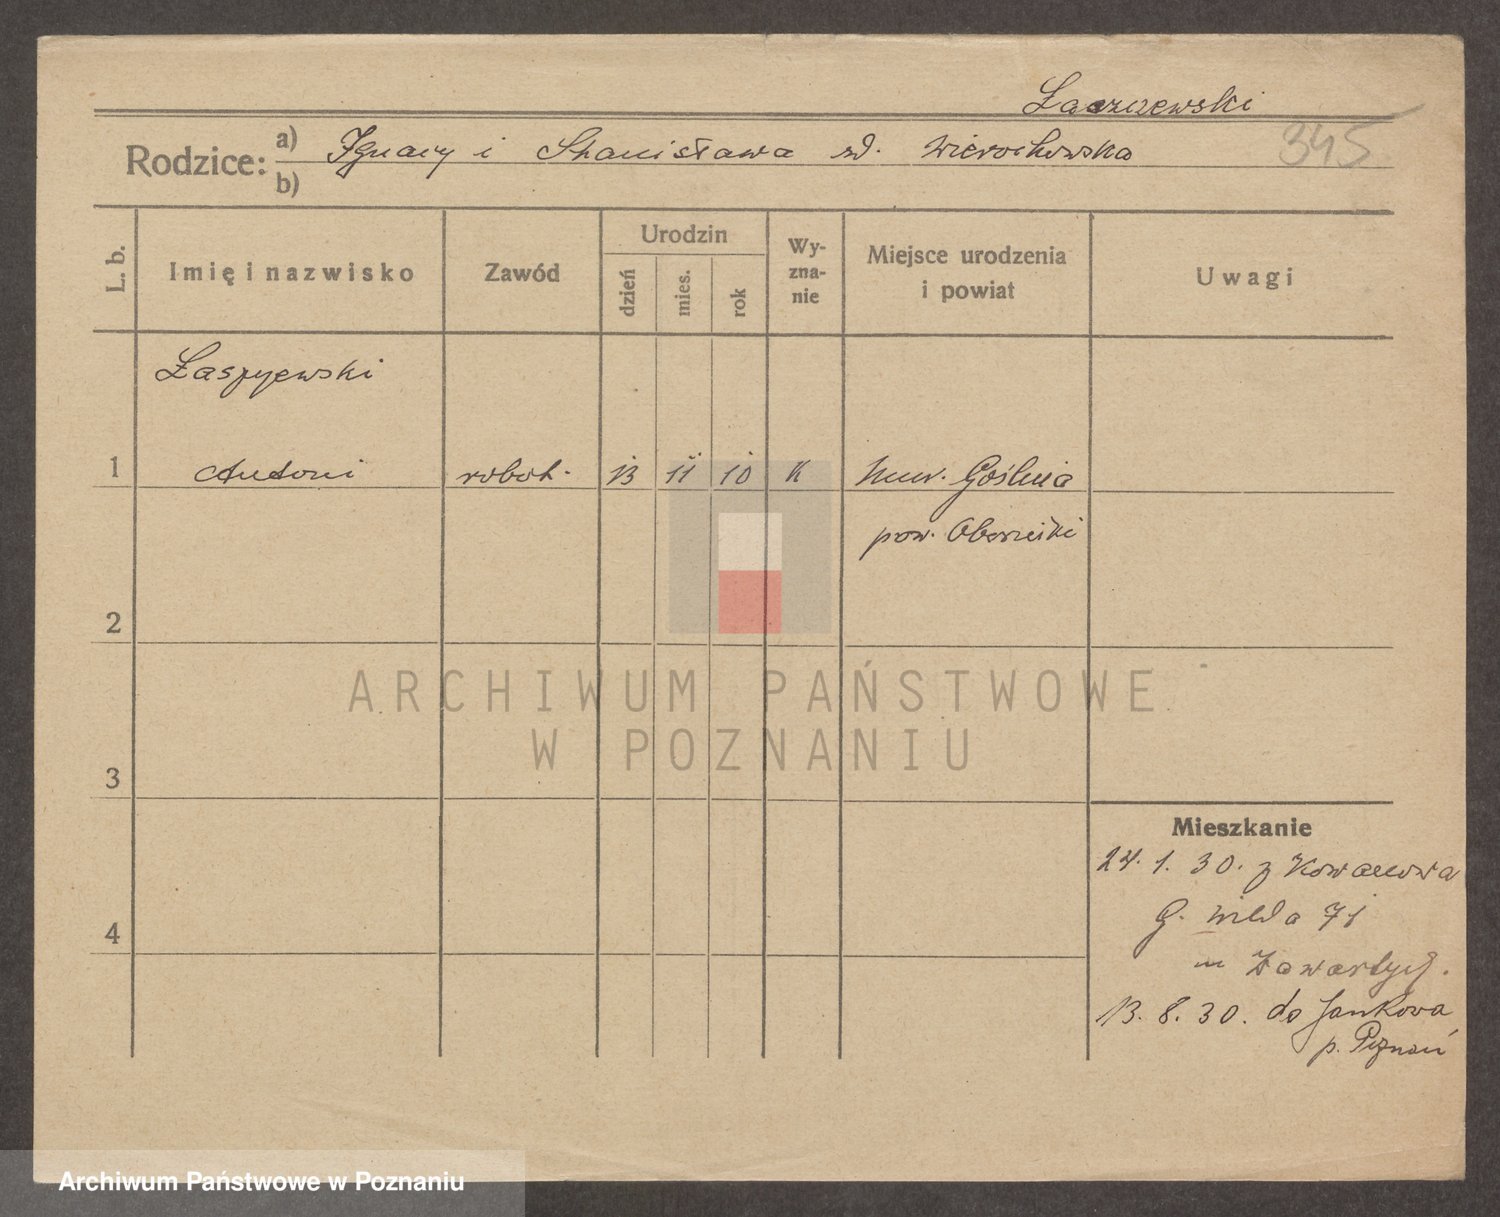 Łaszczewski
345
Rodzice: a) Ignacy i Stanisława zd. Wierochowska
b)
L. b. Imię i nazwisko Zawód Urodzin dzień mies. rok Wy-zna-nie Miejsce urodzenia i powiat Uwagi
Łaszczewski
1 Antoni robot. 13 11 10 K Mur. Goślina
pow. Obornicki
2
ARCHIWUM PAŃSTWOWE
W POZNANIU
3
Mieszkanie
24. 1. 30. z
4 G. Wilda 71
13. 8. 30. do Jankowa
p. Poznań
Archiwum Państwowe w Poznaniu